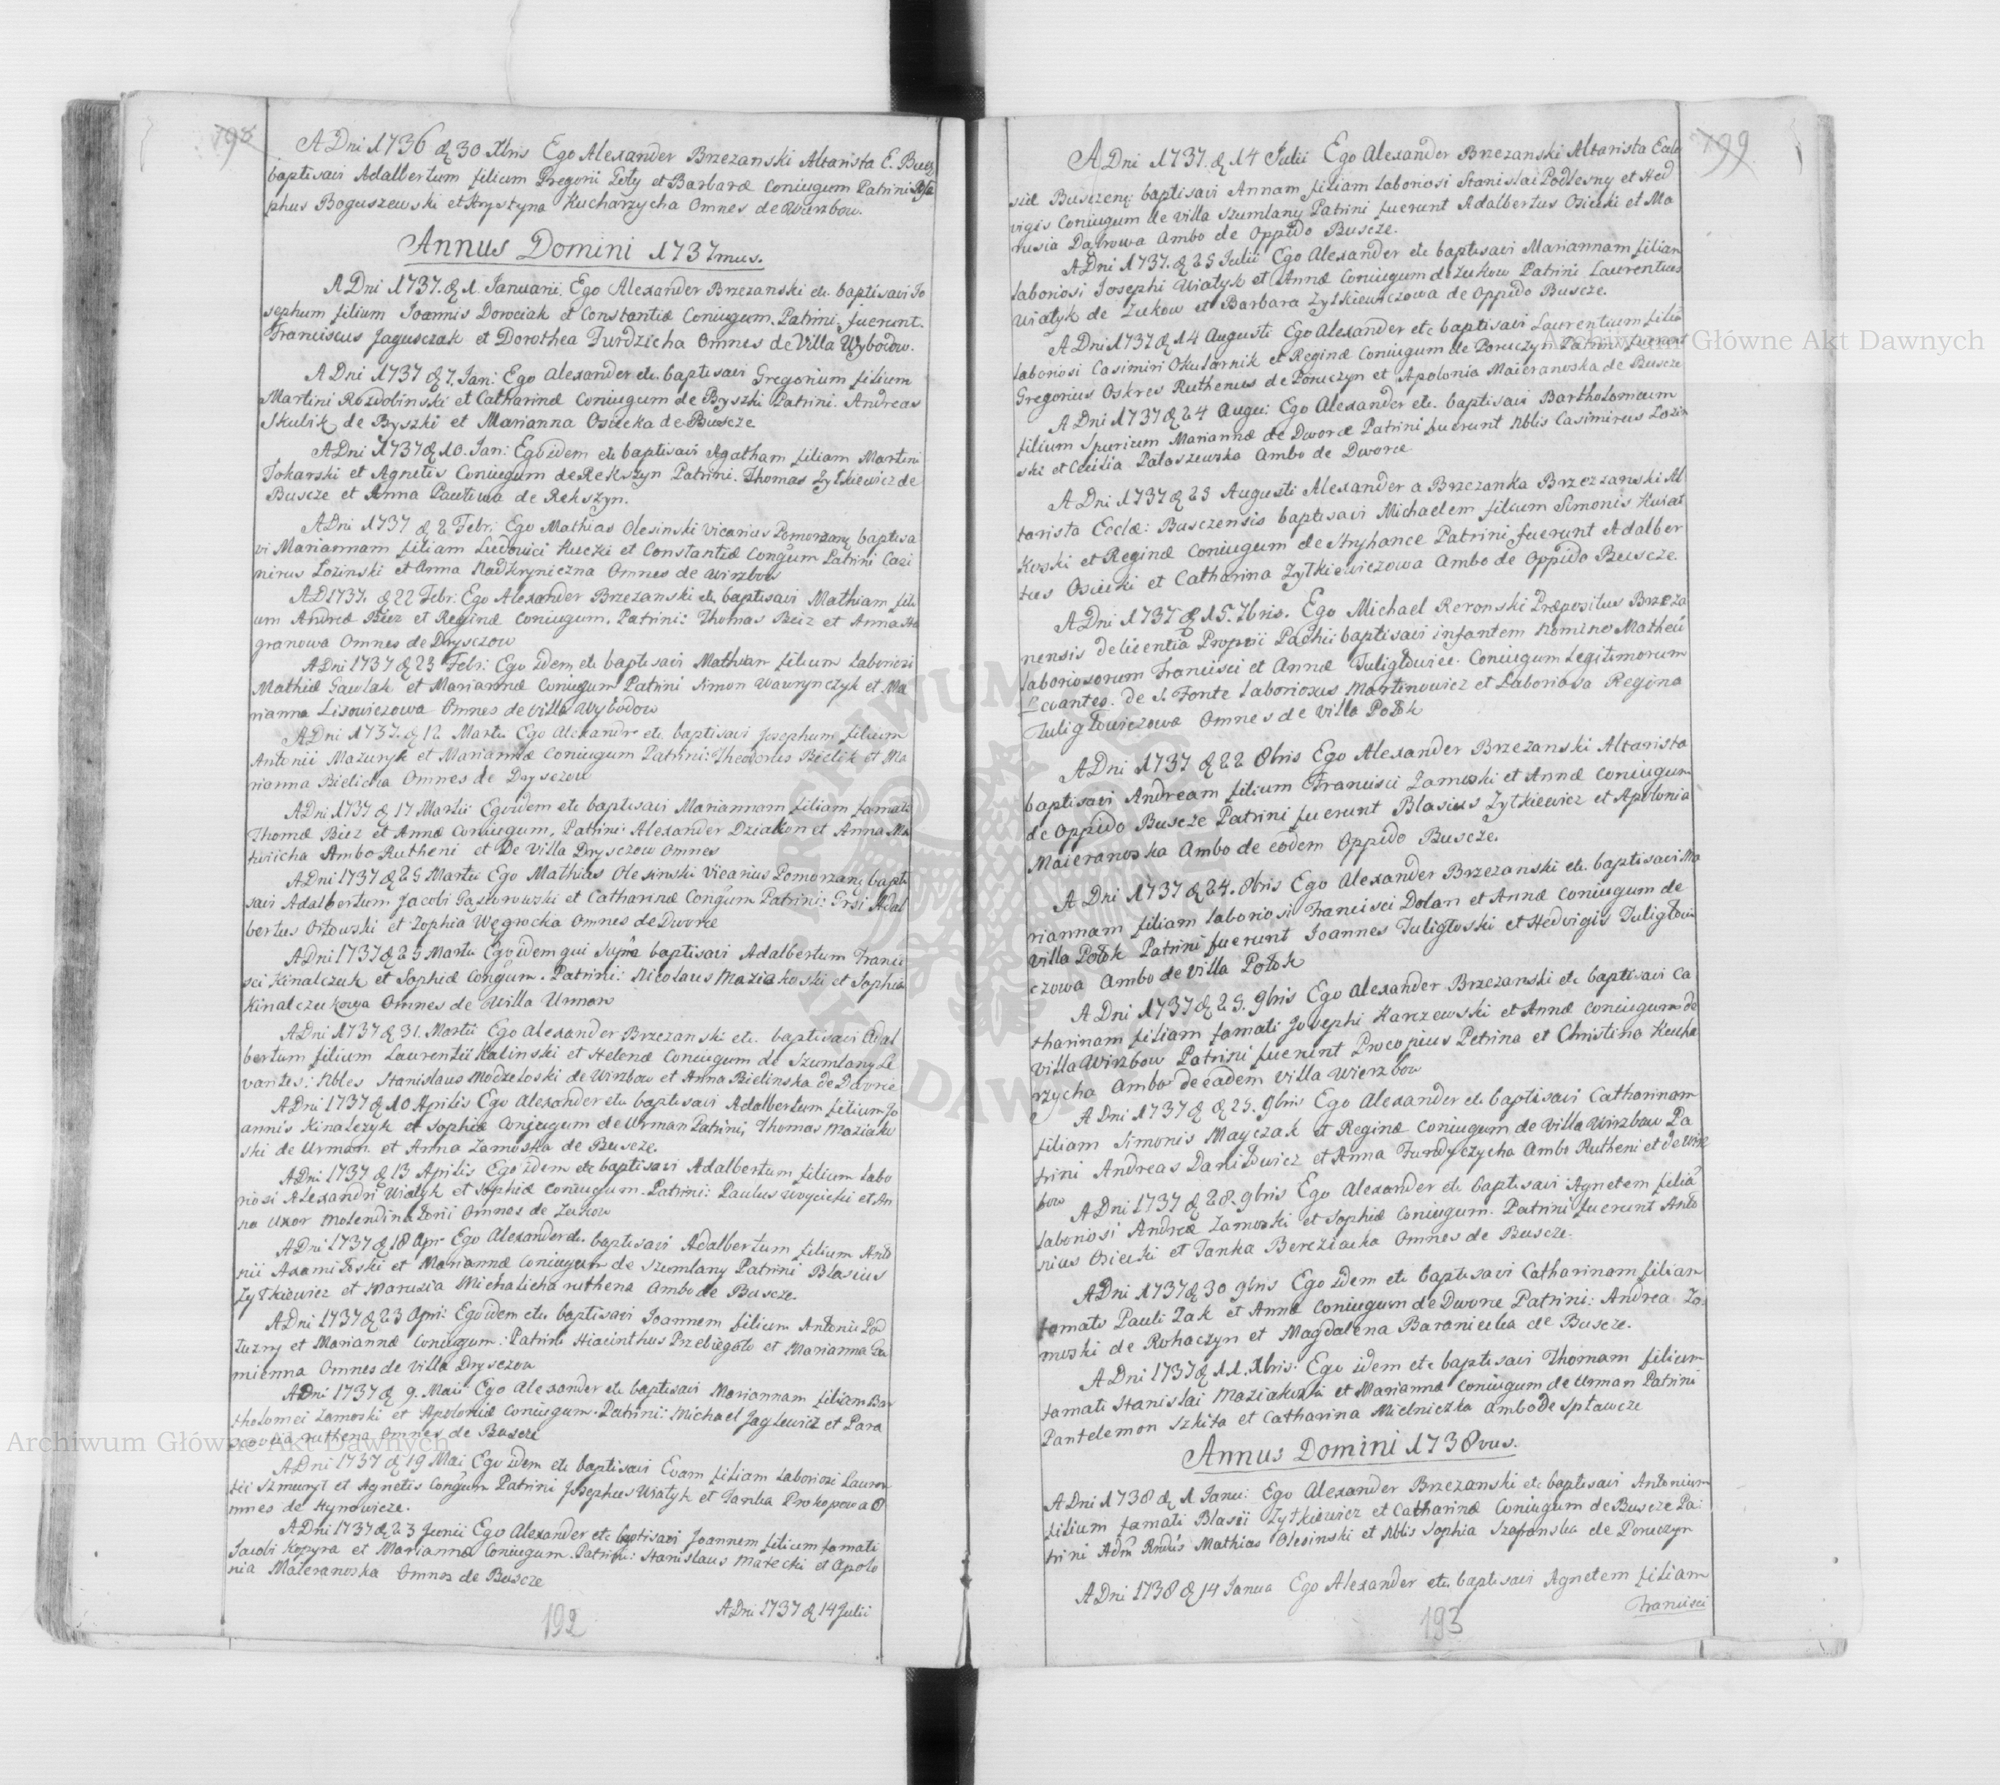 198
A Dni 1736 d 30 Xbris Ego Alexander Brzezanski Altarista E. Buscz
baptisavi Adalbertum filium Gregorii Poty et Barbaræ Coniugum Patrini
phus Boguszewski et Krystyna Kucharzycha Omnes de Wirzbow.
Annus Domini 1737mus.
A Dni 1737. d 1. Januarii. Ego Alexander Brzezanski etc. baptisavi Jo
sephum filium Joannis Dorociak et Constantiæ Coniugum. Patrini fuerunt.
Franciscus Jagusczak et Dorothea Furdzicha Omnes de Villa Wybodow.
A Dni 1737 d 7. Jan: Ego Alexander etc. baptisavi Gregorium filium
Martini Rozdolinski et Catharinæ Coniugum de Byszki Patrini. Andreas
Skubik de Byszki et Marianna Osiecka de Buscze
A Dni 1737 d 10. Jan: Ego idem etc baptisavi Agatham filiam Martini
Tokarski et Agnetis Coniugum de Rekszyn Patrini. Thomas Zytkiewicz de
Buscze et Anna Pawtowa de Rekszyn.
A Dni 1737 d 2 Febr: Ego Mathias Olesinski Vicarius Pomorzany baptisa
vi Mariannam filiam Ludovici Kucki et Constantiæ Congum Patrini Casi
mirus Lozinski et Anna Nadkryniczna Omnes de Wirzbow
A D 1737. d 22 Febr: Ego Alexander Brzezanski etc baptisavi Mathiam fili
um Andreæ Biez et Reginæ Coniugum. Patrini: Thomas Beiz et Anna
granowa Omnes de Drysczow
A Dni 1737 d 23 Febr: Ego idem etc baptisavi Mathiam filium Laboriosi
Mathiæ Gawlak et Mariannæ Coniugum Patrini Simon Wawrynczyk et Ma
rianna Lisowiczowa Omnes de villa Wybodow
A Dni 1737. d 12 Martii Ego Alexandr etc baptisavi Josephum filium
Antonii Mazuryk et Mariannæ Coniugum Patrini: Theodorus Bielik et Ma
rianna Bielicha Omnes de Drysczow
A Dni 1737 d 17 Martii Ego idem etc baptisavi Mariannam filiam famati
Thomæ Biez et Annæ Coniugum, Patrini Alexander Dziakon et Anna Ma
twiicha Ambo Rutheni et De Villa Drysczow Omnes
A Dni 1737 d 25 Martii Ego Mathias Olesinski Vicarius Pomorzany bapti
savi Adalbertum Jacobi Gąsiorowski et Catharinæ Congum Patrini: Grsi Adal
bertus Orłowski et Zophia Węgrocka Omnes de Dworce
A Dni 1737 d 25 Martii Ego idem qui supra baptisavi Adalbertum Franci
sci Kinalczuk et Sophiæ Congum. Patrini: Nicolaus Maziakoski et Sophia
Kinalczukowa Omnes de Villa Urman
A Dni 1737 d 31. Martii Ego Alexander Brzezanski etc. baptisavi Adal
bertum filium Laurentii Kalinski et Helenæ Coniugum de Szumlany Le
vantes: Nbles Stanislaus Modzeloski de Wirzbow et Anna Bielinska de Dworce
A Dni 1737 d 10 Aprilis Ego Alexander etc baptisavi Adalbertum filium Jo
annis Kinalczyk et Sophiæ Coniugum de Urman Patrini, Thomas Maziakow
ski de Urman et Anna Zamoska de Buscze.
A Dni 1737 d 13 Aprilis Ego idem etc baptisavi Adalbertum filium Labo
riosi Alexandri Wiatyk et Sophiæ Coniugum. Patrini: Paulus Woycicki et An
na Uxor Molendinatorii Omnes de Zukow
A Dni 1737 d 18 Apr. Ego Alexander etc. baptisavi Adalbertum filium Anto
nii Axamitoski et Mariannæ Coniugum de Szumlany Patrini Blasius
Zytkiewicz et Marusia Michalicha ruthena Ambo de Buscze.
A Dni 1737 d 23 Apri: Ego idem etc baptisavi Joannem filium Antonii Pod
luzny et Mariannæ Coniugum: Patrini Hiacinthus Przebiegało et Marianna Ka
mienna Omnes de villa Drysczow
A Dni 1737 d 9. Maii Ego Alexander etc baptisavi Mariannam filiam Bar
tholomei Zamoski et Apoloniæ Coniugum. Patrini: Michael Jaglewicz et Para
scovia ruthena Omnes de Buscze
A Dni 1737 d 19 Mai Ego idem etc baptisavi Evam filiam Laboriosi Lauren
tii Szmuryt et Agnetis Congum Patrini Josephus Wiatyk et Janka Prokopowa O
mnes de Hynowicze.
A Dni 1737 d 23 Junii Ego Alexander etc baptisavi Joannem filium famati
Jacobi Kopyra et Mariannæ Coniugum. Patrini: Stanislaus Małecki et Apolo
nia Maieranoska Omnes de Buscze
A Dni 1737 d 14 Julii
192
199
A Dni 1737. d 14 Julii Ego Alexander Brzezanski Altarista Eccle
siæ Busczeny: baptisavi Annam filiam Laboriosi Stanislai Podlesny et Hed
vigis Coniugum de villa Szumlany Patrini fuerunt Adalbertus Osiecki et Ma
rusia Dąbrowa Ambo de Oppido Buscze.
A Dni 1737. d 25 Julii Ego Alexander etc baptisavi Mariannam filiam
Laboriosi Josephi Wiatyk et Annæ Coniugum de Zukow Patrini Laurentius
Wiatyk de Zukow et Barbara Zytkiewiczowa de Oppido Buscze.
A Dni 1737 d 14 Augusti Ego Alexander etc baptisavi Laurentium filiu
Laboriosi Casimiri Okularnik et Reginæ Coniugum de Poruczyn Patrini fuerunt
Gregorius Oskres Ruthenus de Poruczyn et Apolonia Maieranoska de Buscze
A Dni 1737 d 24 Augu: Ego Alexander etc. baptisavi Bartholomæum
filium Spurium Mariannæ de Dworce Patrini fuerunt Nblis Casimirus Lozin
ski et Cecilia Palaszewska Ambo de Dworce
A Dni 1737 d 25 Augusti Alexander a Brzezanka Brzezanski Al
tarista Ecclæ: Busczensis baptisavi Michaelem filium Simonis Kwiat
koski et Reginæ Coniugum de Stryhance Patrini fuerunt Adalber
tus Osiecki et Catharina Zytkiewiczowa Ambo de Oppido Buscze.
A Dni 1737 d 15. 7bris. Ego Michael Reronski Præpositus Brzeza
nensis de licentia Proprii Pachii baptisavi infantem Nomine Matheu
Laboriosorum Francisci et Annæ Tuligłowicz. Coniugum Legitimorum
Levantes. de S. Fonte Laboriosus Martinowicz et Laboriosa Regina
Tuligłowiczowa Omnes de Villa Potok
A Dni 1737 d 22 8bris Ego Alexander Brzezanski Altarista
baptisavi Andream filium Francisci Zamoski et Annæ Coniugum
de Oppido Buscze Patrini fuerunt Blasius Zytkiewicz et Apolonia
Maieranoska Ambo de eodem Oppido Buscze.
A Dni 1737 d 24. 8bris Ego Alexander Brzezanski etc. baptisavi Ma
riannam filiam Laboriosi Francisci Dolan et Annæ Coniugum de
Villa Potok Patrini fuerunt Joannes Tuligłoski et Hedvigis Tuligłowi
czowa Ambo de Villa Potok
A Dni 1737 d 25. 9bris Ego Alexander Brzezanski etc baptisavi Ca
tharinam filiam famati Josephi Karczewski et Annæ Coniugum de
Villa Wirzbow Patrini fuerunt Procopius Petrina et Christina Kucha
rzycha Ambo de eadem Villa Wierzbow
A Dni 1737 d 25. 9bris Ego Alexander etc baptisavi Catharinam
filiam Simonis Mayczak et Reginæ Coniugum de Villa Wirzbow Pa
trini Andreas Daniłowicz et Anna Fundyczycha Ambo Rutheni et de Wirz
bow
A Dni 1737 d 28. 9bris Ego Alexander etc baptisavi Agnetem filia
Laboriosi Andreæ Zamoski et Sophiæ Coniugum. Patrini fuerunt Anto
nius Osiecki et Janka Berezianka Omnes de Buscze.
A Dni 1737 d 30 9bris Ego idem etc baptisavi Catharinam filiam
famati Pauli Zak et Annæ Coniugum de Dworce Patrini: Andrea Za
moski de Rohaczyn et Magdalena Baraniecka de Buscze.
A Dni 1737 d 11. Xbris. Ego idem etc baptisavi Thomam filium
famati Stanislai Maziakoski et Mariannæ Coniugum de Urman Patrini
Pantelemon Szkita et Catharina Mielniczka ambo de Spławcze
Annus Domini 1738vus.
A Dni 1738 d 1 Janu: Ego Alexander Brzezanski etc baptisavi Antonium
filium famati Blasii Zytkiewicz et Catharinæ Coniugum de Buscze Pa:
trini Adm Rndus Mathias Olesinski et Nblis Sophia Szafranska de Poruczyn
A Dni 1738 d 14 Janua Ego Alexander etc. baptisavi Agnetem filiam
Francisci
193
Archiwum Główne Akt Dawnych
Archiwum Główne Akt Dawnych
ARCHIWUM GŁÓWNE AKT DAWNYCH